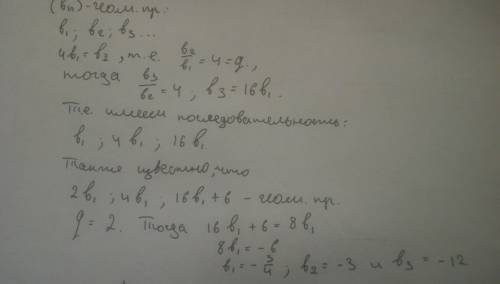 (bn) - геом. пр:
b₁ ; b₂ ; b₃ ...
4b₁ = b₂ , т.е. b₂/b₁ = 4 = q ,
тогда b₃/b₂ = 4 ; b₃ = 16b₁ .
Т.е. имеем последовательность:
b₁ ; 4b₁ ; 16b₁
Также известно, что
2b₁ ; 4b₁ ; 16b₁ + 6 - геом. пр.
q = 2. Тогда 16b₁ + 6 = 8b₁
8b₁ = -6
b₁ = -3/4 ; b₂ = -3 и b₃ = -12